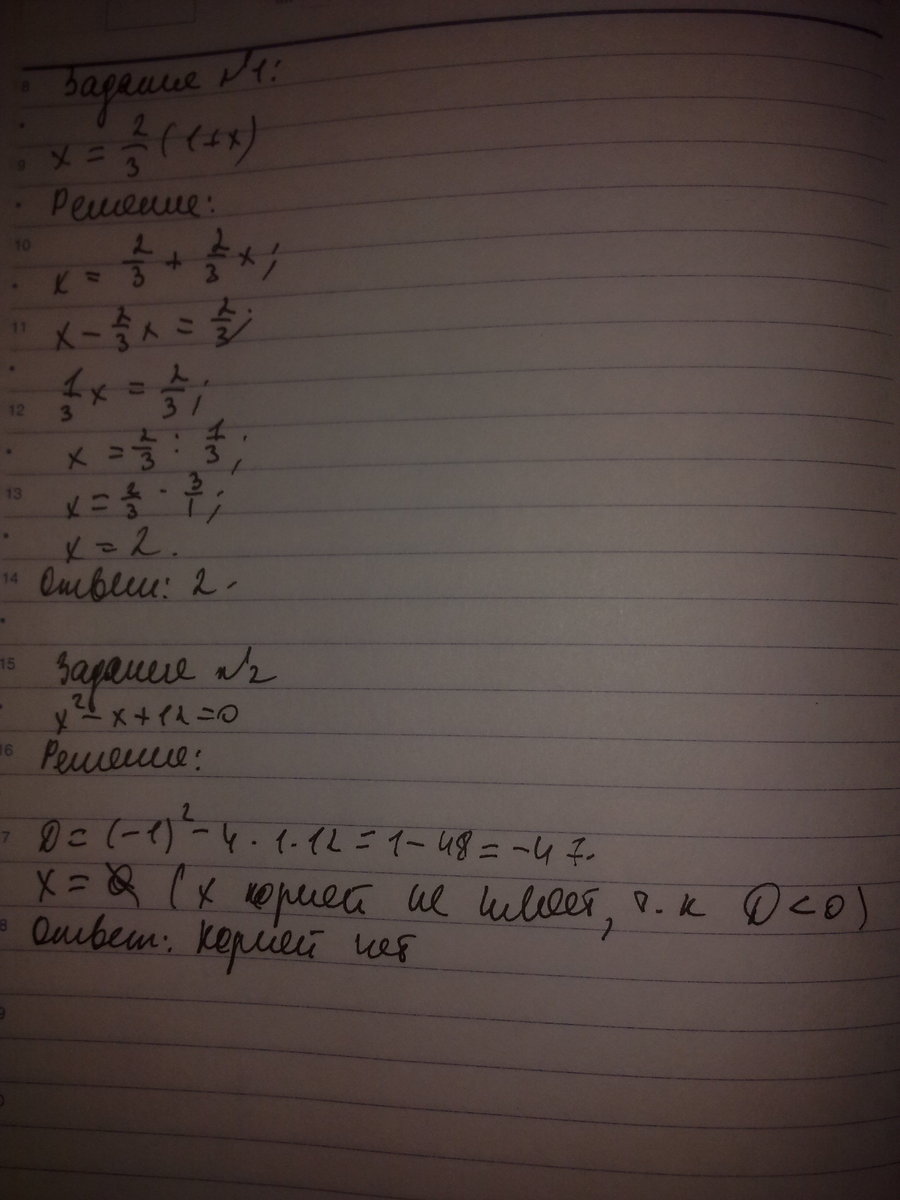 8 Задание №1:
9 x = 2/3 (1+x)
Решение:
10 x = 2/3 + 2/3 x;
11 x - 2/3 x = 2/3;
12 1/3 x = 2/3;
x = 2/3 : 1/3;
13 x = 2/3 · 3/1;
x = 2.
14 Ответ: 2.
15 Задание №2
x² - x + 12 = 0
16 Решение:
7 D = (-1)² - 4 · 1 · 12 = 1 - 48 = -47.
x = (x корней не имеет, т.к D < 0)
8 Ответ: корней нет
9